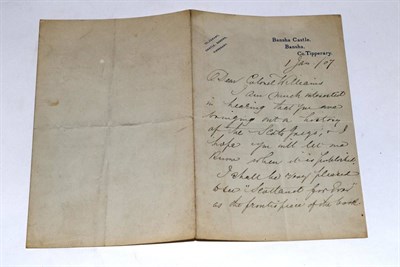 Bansha Castle,
Bansha,
Co. Tipperary.
1 Jan /07
Dear Colonel Williams
I am much interested
in hearing that you are
bringing out a history
of the "Scots Greys", & I
hope you will let me
know when it is published.
I shall be very pleased
to see "Scotland for Ever"
as the frontispiece of the book